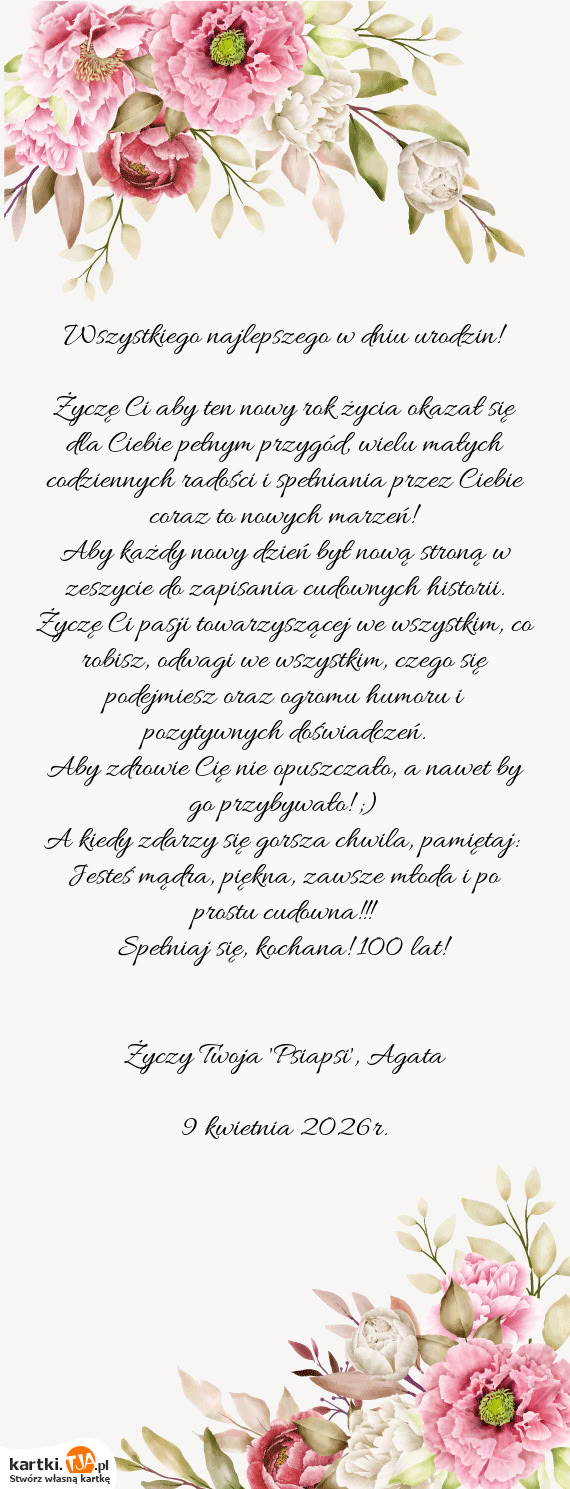 Wszystkiego najlepszego w dniu urodzin!
Życzę Ci aby ten nowy rok życia okazał się
dla Ciebie pełnym przygód, wielu małych
codziennych radości i spełniania przez Ciebie
coraz to nowych marzeń!
Aby każdy nowy dzień był nową stroną w
zeszycie do zapisania cudownych historii.
Życzę Ci pasji towarzyszącej we wszystkim, co
robisz, odwagi we wszystkim, czego się
podejmiesz oraz ogromu humoru i
pozytywnych doświadczeń.
Aby zdrowie Cię nie opuszczało, a nawet by
go przybywało! ;)
A kiedy zdarzy się gorsza chwila, pamiętaj:
Jesteś mądra, piękna, zawsze młoda i po
prostu cudowna!!!
Spełniaj się, kochana! 100 lat!
Życzy Twoja 'Psiapsi', Agata
9 kwietnia 2026r.
kartki.TJA.pl
Stwórz własną kartkę